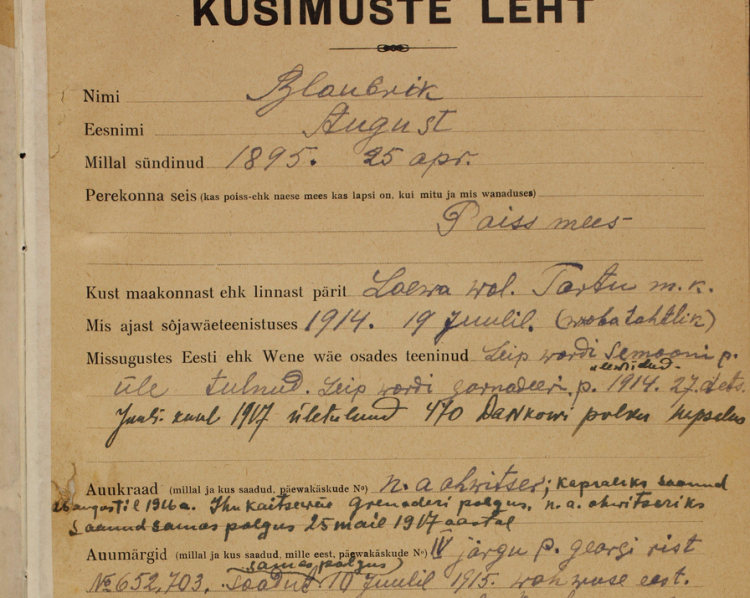 KÜSIMUSTE LEHT
Nimi Blaubrik
Eesnimi August
Millal sündinud 1895. 25 apr.
Perekonna seis (kas poiss-ehk naese mees kas lapsi on, kui mitu ja mis wanaduses)
Poiss mees
Kust maakonnast ehk linnast pärit Laewa wal. Tartu m.k.
Mis ajast sõjawäeteenistuses 1914. 19 Juulil. (wabatahtlik)
Missugustes Eesti ehk Wene wäe osades teeninud Leip wardi Semooni p.
üle tulnud. Leip wardi p. 1914. 27. dets.
Juuli kuul 1917 ületulnud 470 polku
Auukraad (millal ja kus saadud, päewakäskude №) n. a ohwitser; kapraliks saanud
26 augustil 1916 a. Ihukaitsewäe Grenaderi polgus. n. a. ohwitseriks
Saanud samas polgus 25 mail 1917 aastal
Auumärgid (millal ja kus saadud, mille eest, päewakäskude №) IV järgu p. georgi rist
samas polgus
№ 652,703. saadud 10 Juulil 1915. eest.